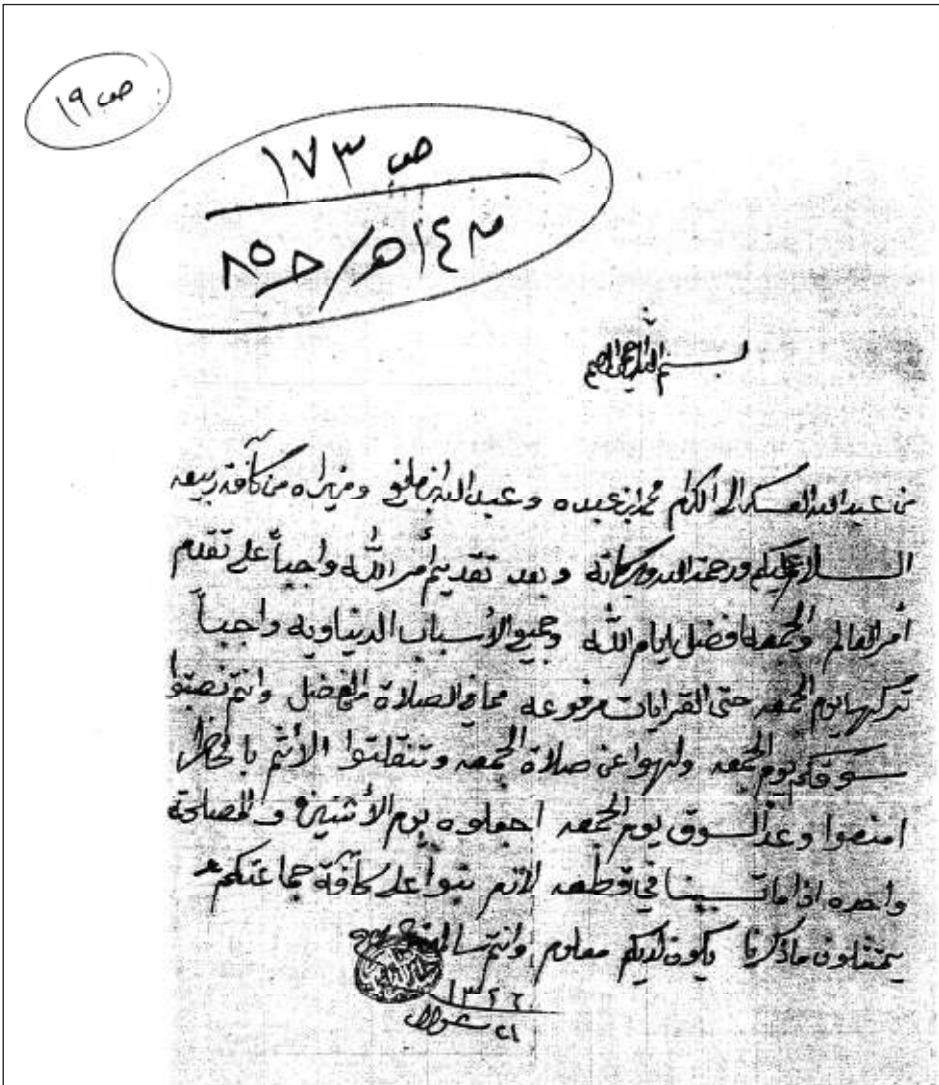 ص ١٩
ص ١٧٣
١٤٣هـ/ح٨٥
بسم الله الرحمن الرحيم
من عبد الله العسكر الى الكرام محمد ابن عبده وعبد الله ابن مانع من كآفة ربيعه
السلام عليكم ورحمة الله وبركاته وبعد تقديم أمر الله واجباً على تقدم
أمر العالم والجمعه افضل ايام الله وجميع الأسباب الدنياويه واجباً
تركها يوم الجمعه حتى القرايات مرفوعه الصلاة وانتم نصبتوا
سوقكم يوم الجمعه ولهوا عن صلاة الجمعه وتنقلتوا الأثم
امنعوا وعد السوق يوم الجمعه اجعلوه يوم الأثنين والمصلحة
واحده اذا في على كآفة جماعتكم
يمتثلون ماذكرنا يكون لديكم معلوم وانتم سالمين
١٣٤٢
٢١ شوال